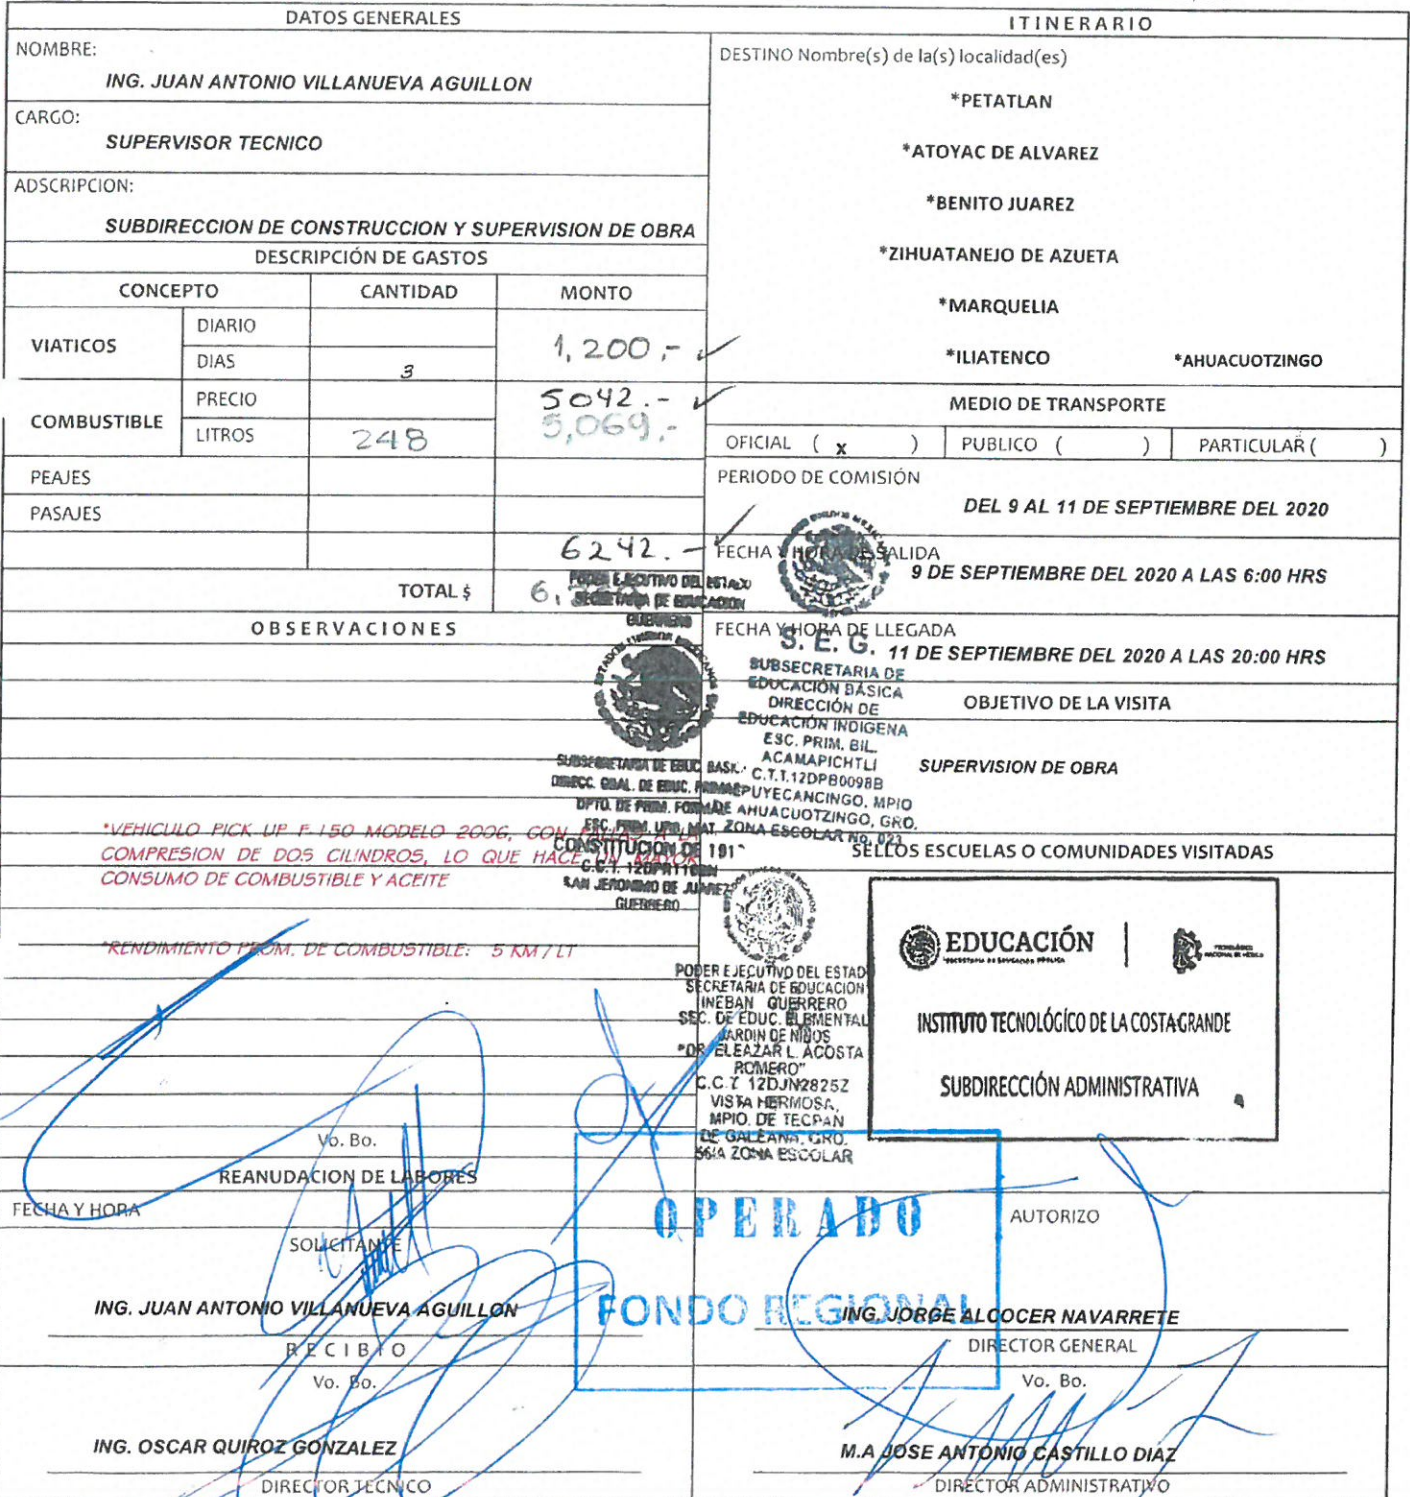 DATOS GENERALES
NOMBRE:
ING. JUAN ANTONIO VILLANUEVA AGUILLON
CARGO:
SUPERVISOR TECNICO
ADSCRIPCION:
SUBDIRECCION DE CONSTRUCCION Y SUPERVISION DE OBRA
DESCRIPCIÓN DE GASTOS
CONCEPTO CANTIDAD MONTO
VIATICOS
DIARIO
DIAS 3
1,200.-
COMBUSTIBLE
PRECIO
5042.-
LITROS 248
5,069.-
PEAJES
PASAJES
6242.-
TOTAL $ 6,
OBSERVACIONES
*VEHICULO PICK UP F-150 MODELO 2006, CON FALLAS A LA
COMPRESION DE DOS CILINDROS, LO QUE HACE UN MAYOR
CONSUMO DE COMBUSTIBLE Y ACEITE
*RENDIMIENTO PROM. DE COMBUSTIBLE: 5 KM / LT
ITINERARIO
DESTINO Nombre(s) de la(s) localidad(es)
*PETATLAN
*ATOYAC DE ALVAREZ
*BENITO JUAREZ
*ZIHUATANEJO DE AZUETA
*MARQUELIA
*ILIATENCO *AHUACUOTZINGO
MEDIO DE TRANSPORTE
OFICIAL ( x ) PUBLICO ( ) PARTICULAR ( )
PERIODO DE COMISIÓN
DEL 9 AL 11 DE SEPTIEMBRE DEL 2020
FECHA Y HORA DE SALIDA
9 DE SEPTIEMBRE DEL 2020 A LAS 6:00 HRS
FECHA Y HORA DE LLEGADA
11 DE SEPTIEMBRE DEL 2020 A LAS 20:00 HRS
OBJETIVO DE LA VISITA
SUPERVISION DE OBRA
SELLOS ESCUELAS O COMUNIDADES VISITADAS
PODER EJECUTIVO DEL ESTADO
SECRETARIA DE EDUCACION
GUERRERO
ESTADOS UNIDOS MEXICANOS
SUBSECRETARIA DE EDUC. BASK.
DIRECC. GRAL. DE EDUC. PRIMAR
DPTO. DE PRIM. FORMAL
ESC. PRIM. URB. MAT.
CONSTITUCION DE 191
C.C.T.
SAN JERONIMO DE JUAREZ
GUERRERO
S. E. G.
SUBSECRETARIA DE
EDUCACIÓN BÁSICA
DIRECCIÓN DE
EDUCACIÓN INDIGENA
ESC. PRIM. BIL.
ACAMAPICHTLI
C.T.T.12DPB0098B
PUYECANCINGO, MPIO
DE AHUACUOTZINGO, GRO.
ZONA ESCOLAR No. 023
PODER EJECUTIVO DEL ESTAD
SECRETARIA DE EDUCACION
INEBAN GUERRERO
SEC. DE EDUC. ELEMENTAL
JARDIN DE NIÑOS
"DR. ELEAZAR L. ACOSTA
ROMERO"
C.C.T 12DJN2825Z
VISTA HERMOSA,
MPIO. DE TECPAN
DE GALEANA, GRO.
ZONA ESCOLAR
EDUCACIÓN
SECRETARÍA DE EDUCACIÓN PÚBLICA
TECNOLÓGICO
NACIONAL DE MÉXICO
INSTITUTO TECNOLÓGICO DE LA COSTA GRANDE
SUBDIRECCIÓN ADMINISTRATIVA
Vo. Bo.
REANUDACION DE LABORES
FECHA Y HORA
SOLICITANTE
ING. JUAN ANTONIO VILLANUEVA AGUILLON
RECIBIO
Vo. Bo.
ING. OSCAR QUIROZ GONZALEZ
DIRECTOR TECNICO
OPERADO
FONDO REGIONAL
AUTORIZO
ING. JORGE ALCOCER NAVARRETE
DIRECTOR GENERAL
Vo. Bo.
M.A JOSE ANTONIO CASTILLO DIAZ
DIRECTOR ADMINISTRATIVO